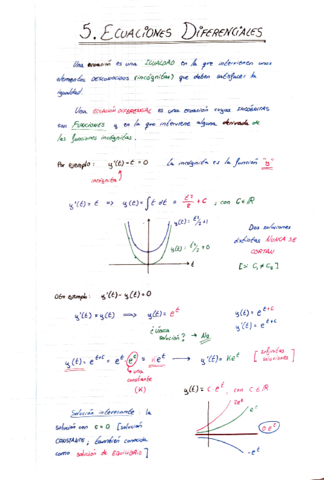 5. ECUACIONES DIFERENCIALES
Una ecuación es una IGUALDAD en la que intervienen unos
elementos DESCONOCIDOS (incógnitas) que deben satisfacer la
igualdad.
Una ECUACIÓN DIFERENCIAL es una ecuación cuyas INCÓGNITAS
son FUNCIONES y en la que interviene alguna derivada de
las funciones incógnitas.
Por ejemplo: y'(t)-t=0 la incógnita es la función "y"
incógnita
y'(t)=t => y(t)=∫t dt = t²/2 + C ; con C∈ℝ
y(t)=t²/2+1
y(t)=t²/2+0
t
Dos soluciones
distintas NUNCA SE
CORTAN
[x C₁≠C₂]
Otro ejemplo: y'(t)-y(t)=0
y'(t)=y(t) => y(t)=e^t
y(t)=e^(t+c)
y'(t)=e^(t+c)
¿Única solución? → No
y(t)=e^(t+c) = e^t e^c = Ke^t → y'(t)=Ke^t [infinitas soluciones]
una
constante
(K)
y(t)=c·e^t, con c∈ℝ
Solución interesante: la
solución con c=0 [solución
CONSTANTE, también conocida
como solución de EQUILIBRIO]
2e^t
e^t
0·e^t
-e^t